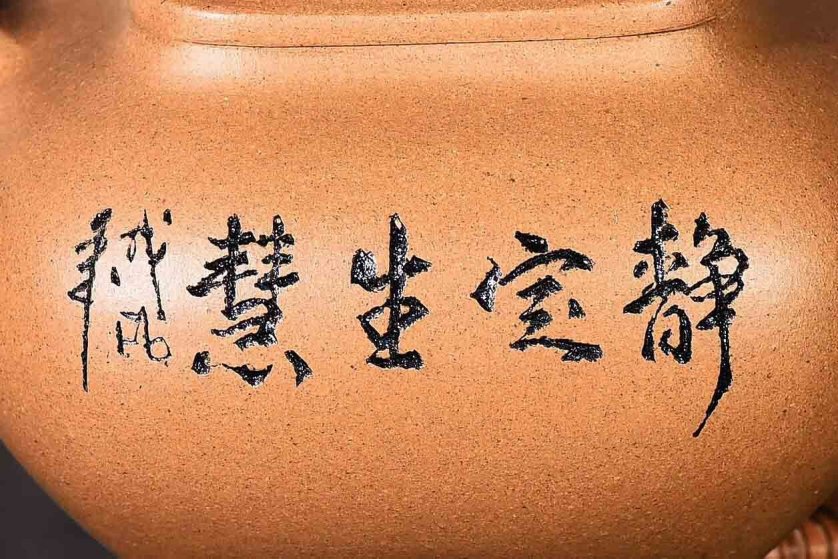 静定生慧